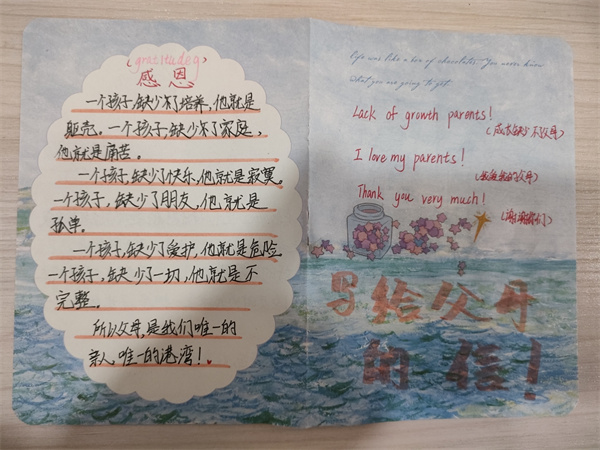 (gratitude)
感恩
一个孩子,缺少了培养,他就是
躯壳。一个孩子,缺少了家庭,
他就是痛苦。
一个孩子,缺少了快乐,他就是寂寞。
一个孩子,缺少了朋友,他就是
孤单。
一个孩子,缺少了爱护,他就是危险
一个孩子,缺少了一切,他就是不
完整。
所以父母,是我们唯一的
亲人唯一的港湾!。
Life was like a box of chocolates. You never know
what you are going to get.
Lack of growth parents!
(成长缺少不父母)
I love my parents!
(我爱我的父母)
Thank you very much!
(谢谢你们)
写给父母
的信!